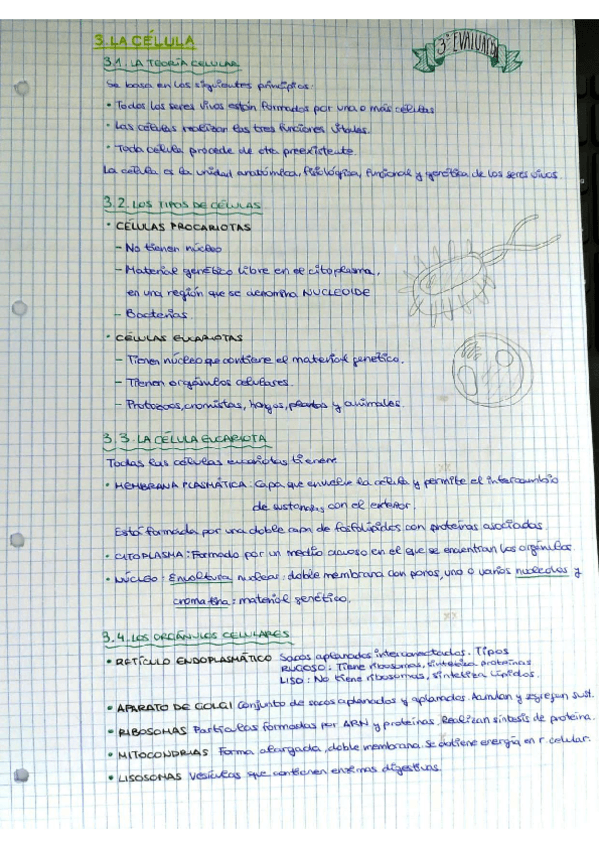 3. LA CÉLULA
3ª EVALUACIÓN
3.1. LA TEORÍA CELULAR
Se basa en los siguientes principios:
• Todos los seres vivos están formados por una o más células
• Las células realizan las tres funciones vitales.
• Toda célula procede de otra preexistente.
La célula es la unidad anatómica, fisiológica, funcional y genética de los seres vivos.
3.2. LOS TIPOS DE CÉLULAS
• CÉLULAS PROCARIOTAS
– No tienen núcleo
– Material genético libre en el citoplasma,
en una región que se denomina NUCLEOIDE
– Bacterias
• CÉLULAS EUCARIOTAS
– Tienen núcleo que contiene el material genético.
– Tienen orgánulos celulares.
– Protozoos, cromistas, hongos, plantas y animales.
3.3. LA CÉLULA EUCARIOTA
Todas las células eucariotas tienen:
• MEMBRANA PLASMÁTICA: Capa que envuelve la célula y permite el intercambio
de sustancias con el exterior.
Está formada por una doble capa de fosfolípidos con proteínas asociadas.
• CITOPLASMA: Formado por un medio acuoso en el que se encuentran los orgánulos.
• NÚCLEO: Envoltura nuclear: doble membrana con poros, uno o varios nucleolos y
cromatina: material genético.
3.4. LOS ORGÁNULOS CELULARES
• RETÍCULO ENDOPLASMÁTICO Sacos aplanados interconectados. Tipos
RUGOSO: Tiene ribosomas, sintetiza proteínas
LISO: No tiene ribosomas, sintetiza lípidos.
• APARATO DE GOLGI Conjunto de sacos aplanados y aplanados. Acumulan y segregan sust.
• RIBOSOMAS Partículas formadas por ARN y proteínas. Realizan síntesis de proteína.
• MITOCONDRIAS Forma alargada, doble membrana. Se obtiene energía en r. celular.
• LISOSOMAS Vesículas que contienen enzimas digestivas.